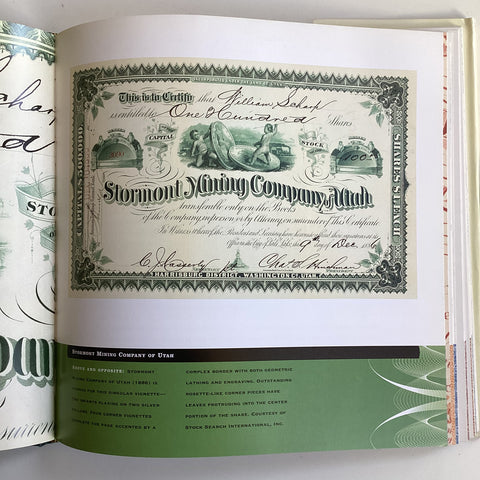 INCORPORATED UNDER THE
This is to Certify that William Scharf
is entitled to One Hundred Shares
CAPITAL STOCK
CAPITAL $500,000.
SHARES $1 EACH
100
Stormont Mining Company of Utah
transferable only on the Books
of the Company in person or by Attorney on surrender of this Certificate.
In Witness whereof the President and Secretary have hereunto
9th Dec 1886
SECRETARY
PRESIDENT
HARRISBURG DISTRICT, WASHINGTON CO. UTAH.
STO
STORMONT MINING COMPANY OF UTAH
ABOVE AND OPPOSITE: STORMONT
MINING COMPANY OF UTAH (1886) IS
KNOWN FOR THIS SINGULAR VIGNETTE—
TWO INFANTS PLAYING ON TWO SILVER
DOLLARS. FOUR CORNER VIGNETTES
COMPLETE THE PAGE ACCENTED BY A
COMPLEX BORDER WITH BOTH GEOMETRIC
LATHING AND ENGRAVING. OUTSTANDING
ROSETTE-LIKE CORNER PIECES HAVE
LEAVES PROTRUDING INTO THE CENTER
PORTION OF THE SHARE. COURTESY OF
STOCK SEARCH INTERNATIONAL, INC.